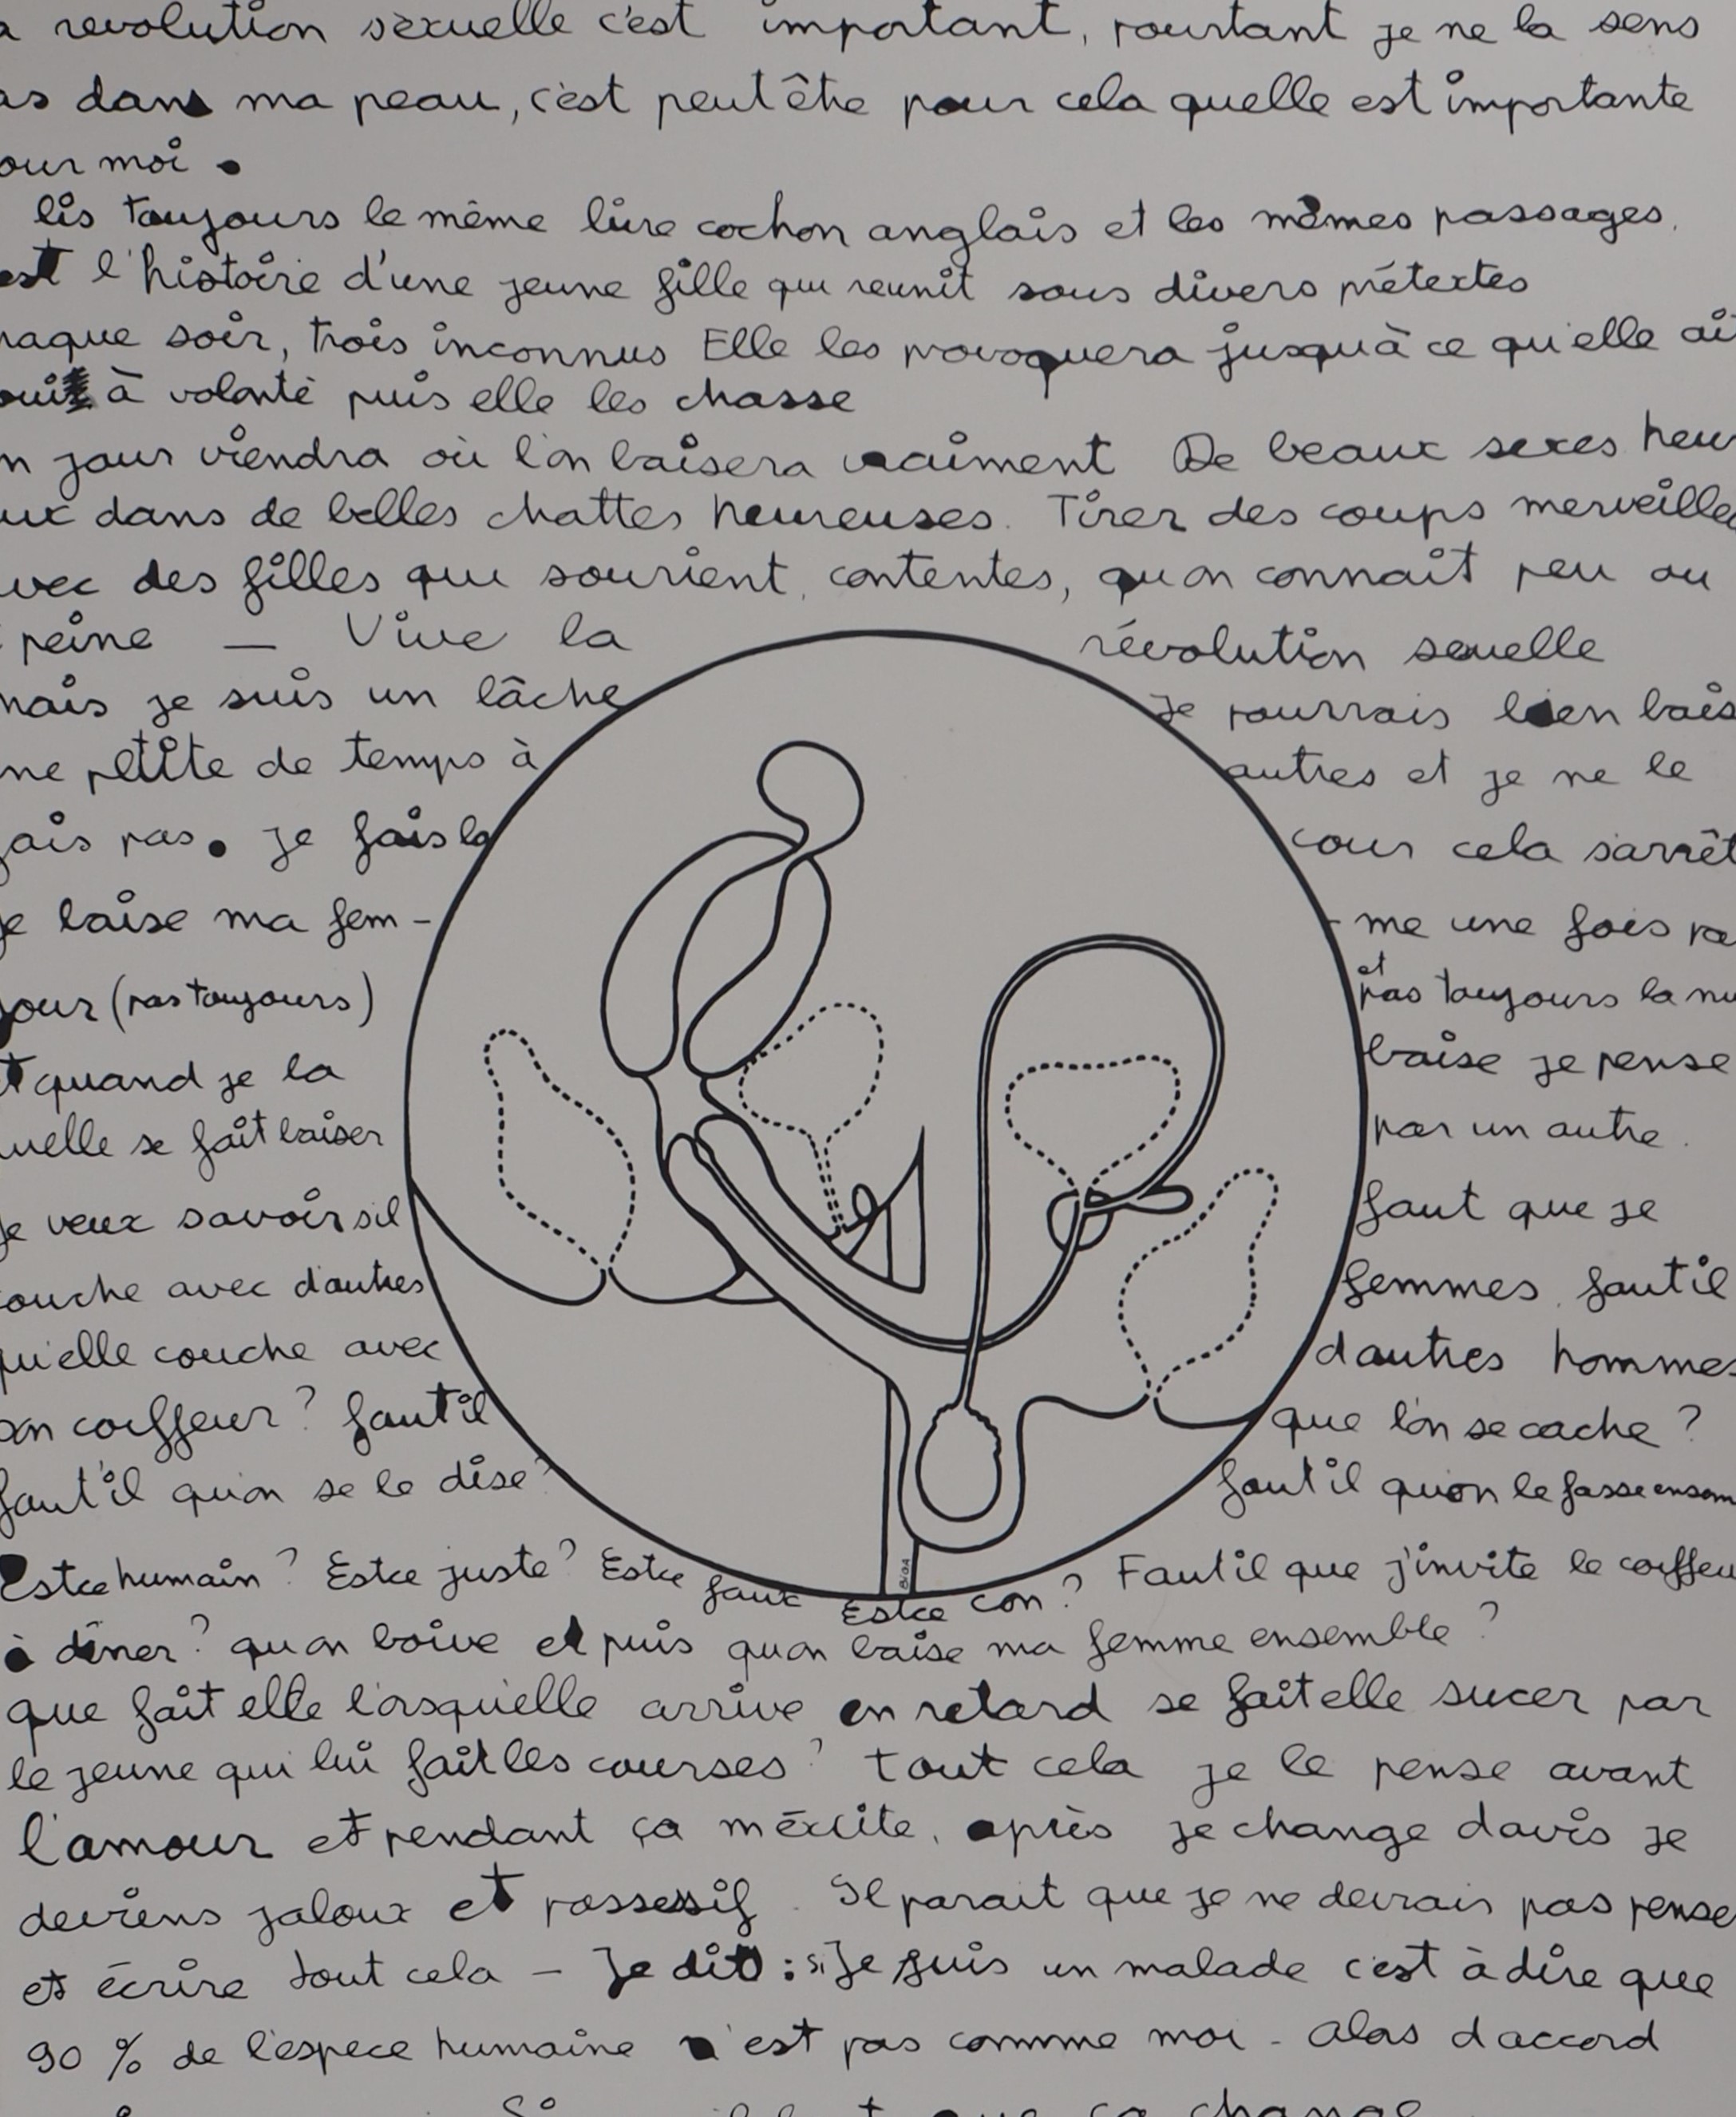 a revolution sexuelle c'est important, pourtant je ne la sens
as dans ma peau, c'est peut être pour cela quelle est importante
our moi.
lis toujours le même livre cochon anglais et les mêmes passages.
est l'histoire d'une jeune fille qui reunit sous divers prétextes
haque soir, trois inconnus Elle les provoquera jusqu'à ce qu'elle ai
oui à volonté puis elle les chasse
n jour viendra où l'on baisera vraiment De beaux sexes heur
ux dans de belles chattes heureuses. Tirer des coups merveille
vec des filles qui sourient, contentes, qu'on connait peu ou
peine — Vive la révolution sexuelle
mais je suis un lâche je pourrais bien bais
ne petite de temps à autres et je ne le
fais pas. je fais la cour cela s'arrêt
je baise ma fem- -me une fois pa
jour (pas toujours) et pas toujours la nu
et quand je la baise je pense
uelle se fait baiser par un autre.
je veux savoir sil faut que je
couche avec d'autres femmes. faut il
qu'elle couche avec d'autres hommes
on coiffeur? faut il que l'on se cache?
faut'il qu'on se le dise? faut il qu'on le fasse ensem
Estce humain? Estce juste? Estce faux Estce con? Faut il que j'invite le coiffeu
à diner? qu'on boive et puis qu'on baise ma femme ensemble?
que fait elle lorsqu'elle arrive en retard se fait elle sucer par
le jeune qui lui fait les courses? tout cela je le pense avant
l'amour et pendant ça m'éxcite, après je change d'avis je
deviens jaloux et possessif. Il parait que je ne devrais pas pense
et écrire tout cela — Je dit : si je suis un malade c'est à dire que
90 % de l'espece humaine n'est pas comme moi - Alos d'accord
que ça change